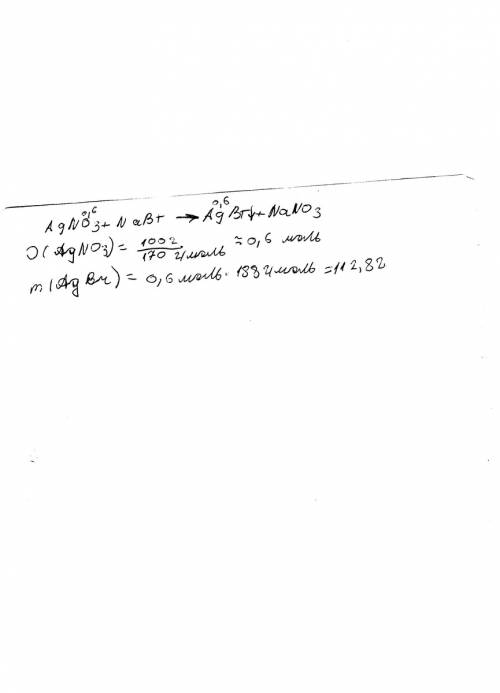 0,6 0,6
AgNO3 + NaBr → AgBr↓ + NaNO3
υ(AgNO3) = 100г / 170 г/моль ≈ 0,6 моль
m(AgBr) = 0,6 моль · 188 г/моль = 112,8г